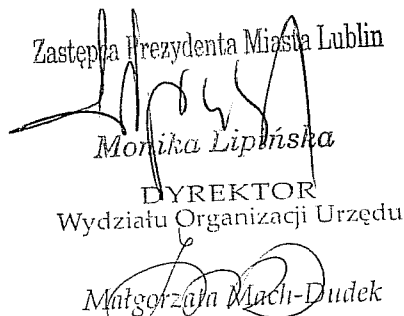 Zastępca Prezydenta Miasta Lublin
Monika Lipińska
DYREKTOR
Wydziału Organizacji Urzędu
Małgorzata Mach-Dudek